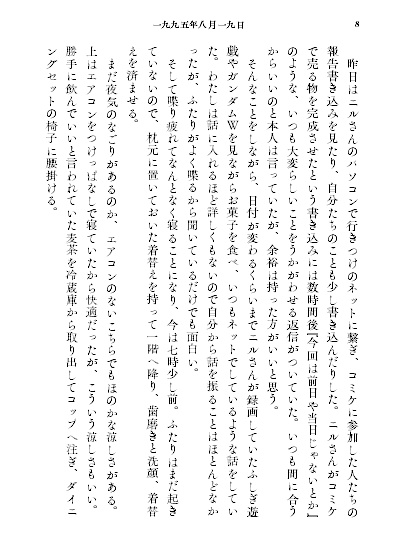 一九九五年八月一九日
8
昨日はニルさんのパソコンで行きつけのネットに繋ぎ、コミケに参加した人たちの
報告書き込みを見たり、自分たちのことも少し書き込んだりした。ニルさんがコミケ
で売る物を完成させたという書き込みには数時間後『今回は前日や当日じゃないとか』
のような、いつも大変らしいことをうかがわせる返信がついていた。いつも間に合う
からいいのと本人は言っていたが、余裕は持った方がいいと思う。
そんなことをしながら、日付が変わるくらいまでニルさんが録画していたふしぎ遊
戯やガンダムWを見ながらお菓子を食べ、いつもネットでしているような話をしてい
た。わたしは話に入れるほど詳しくもないので自分から話を振ることはほとんどなか
ったが、ふたりがよく喋るから聞いているだけでも面白い。
そして喋り疲れてなんとなく寝ることになり、今は七時少し前。ふたりはまだ起き
ていないので、枕元に置いておいた着替えを持って一階へ降り、歯磨きと洗顔、着替
えを済ませる。
まだ夜気のなごりがあるのか、エアコンのないこちらでもほのかな涼しさがある。
上はエアコンをつけっぱなしで寝ていたから快適だったが、こういう涼しさもいい。
勝手に飲んでいいと言われていた麦茶を冷蔵庫から取り出してコップへ注ぎ、ダイニ
ングセットの椅子に腰掛ける。